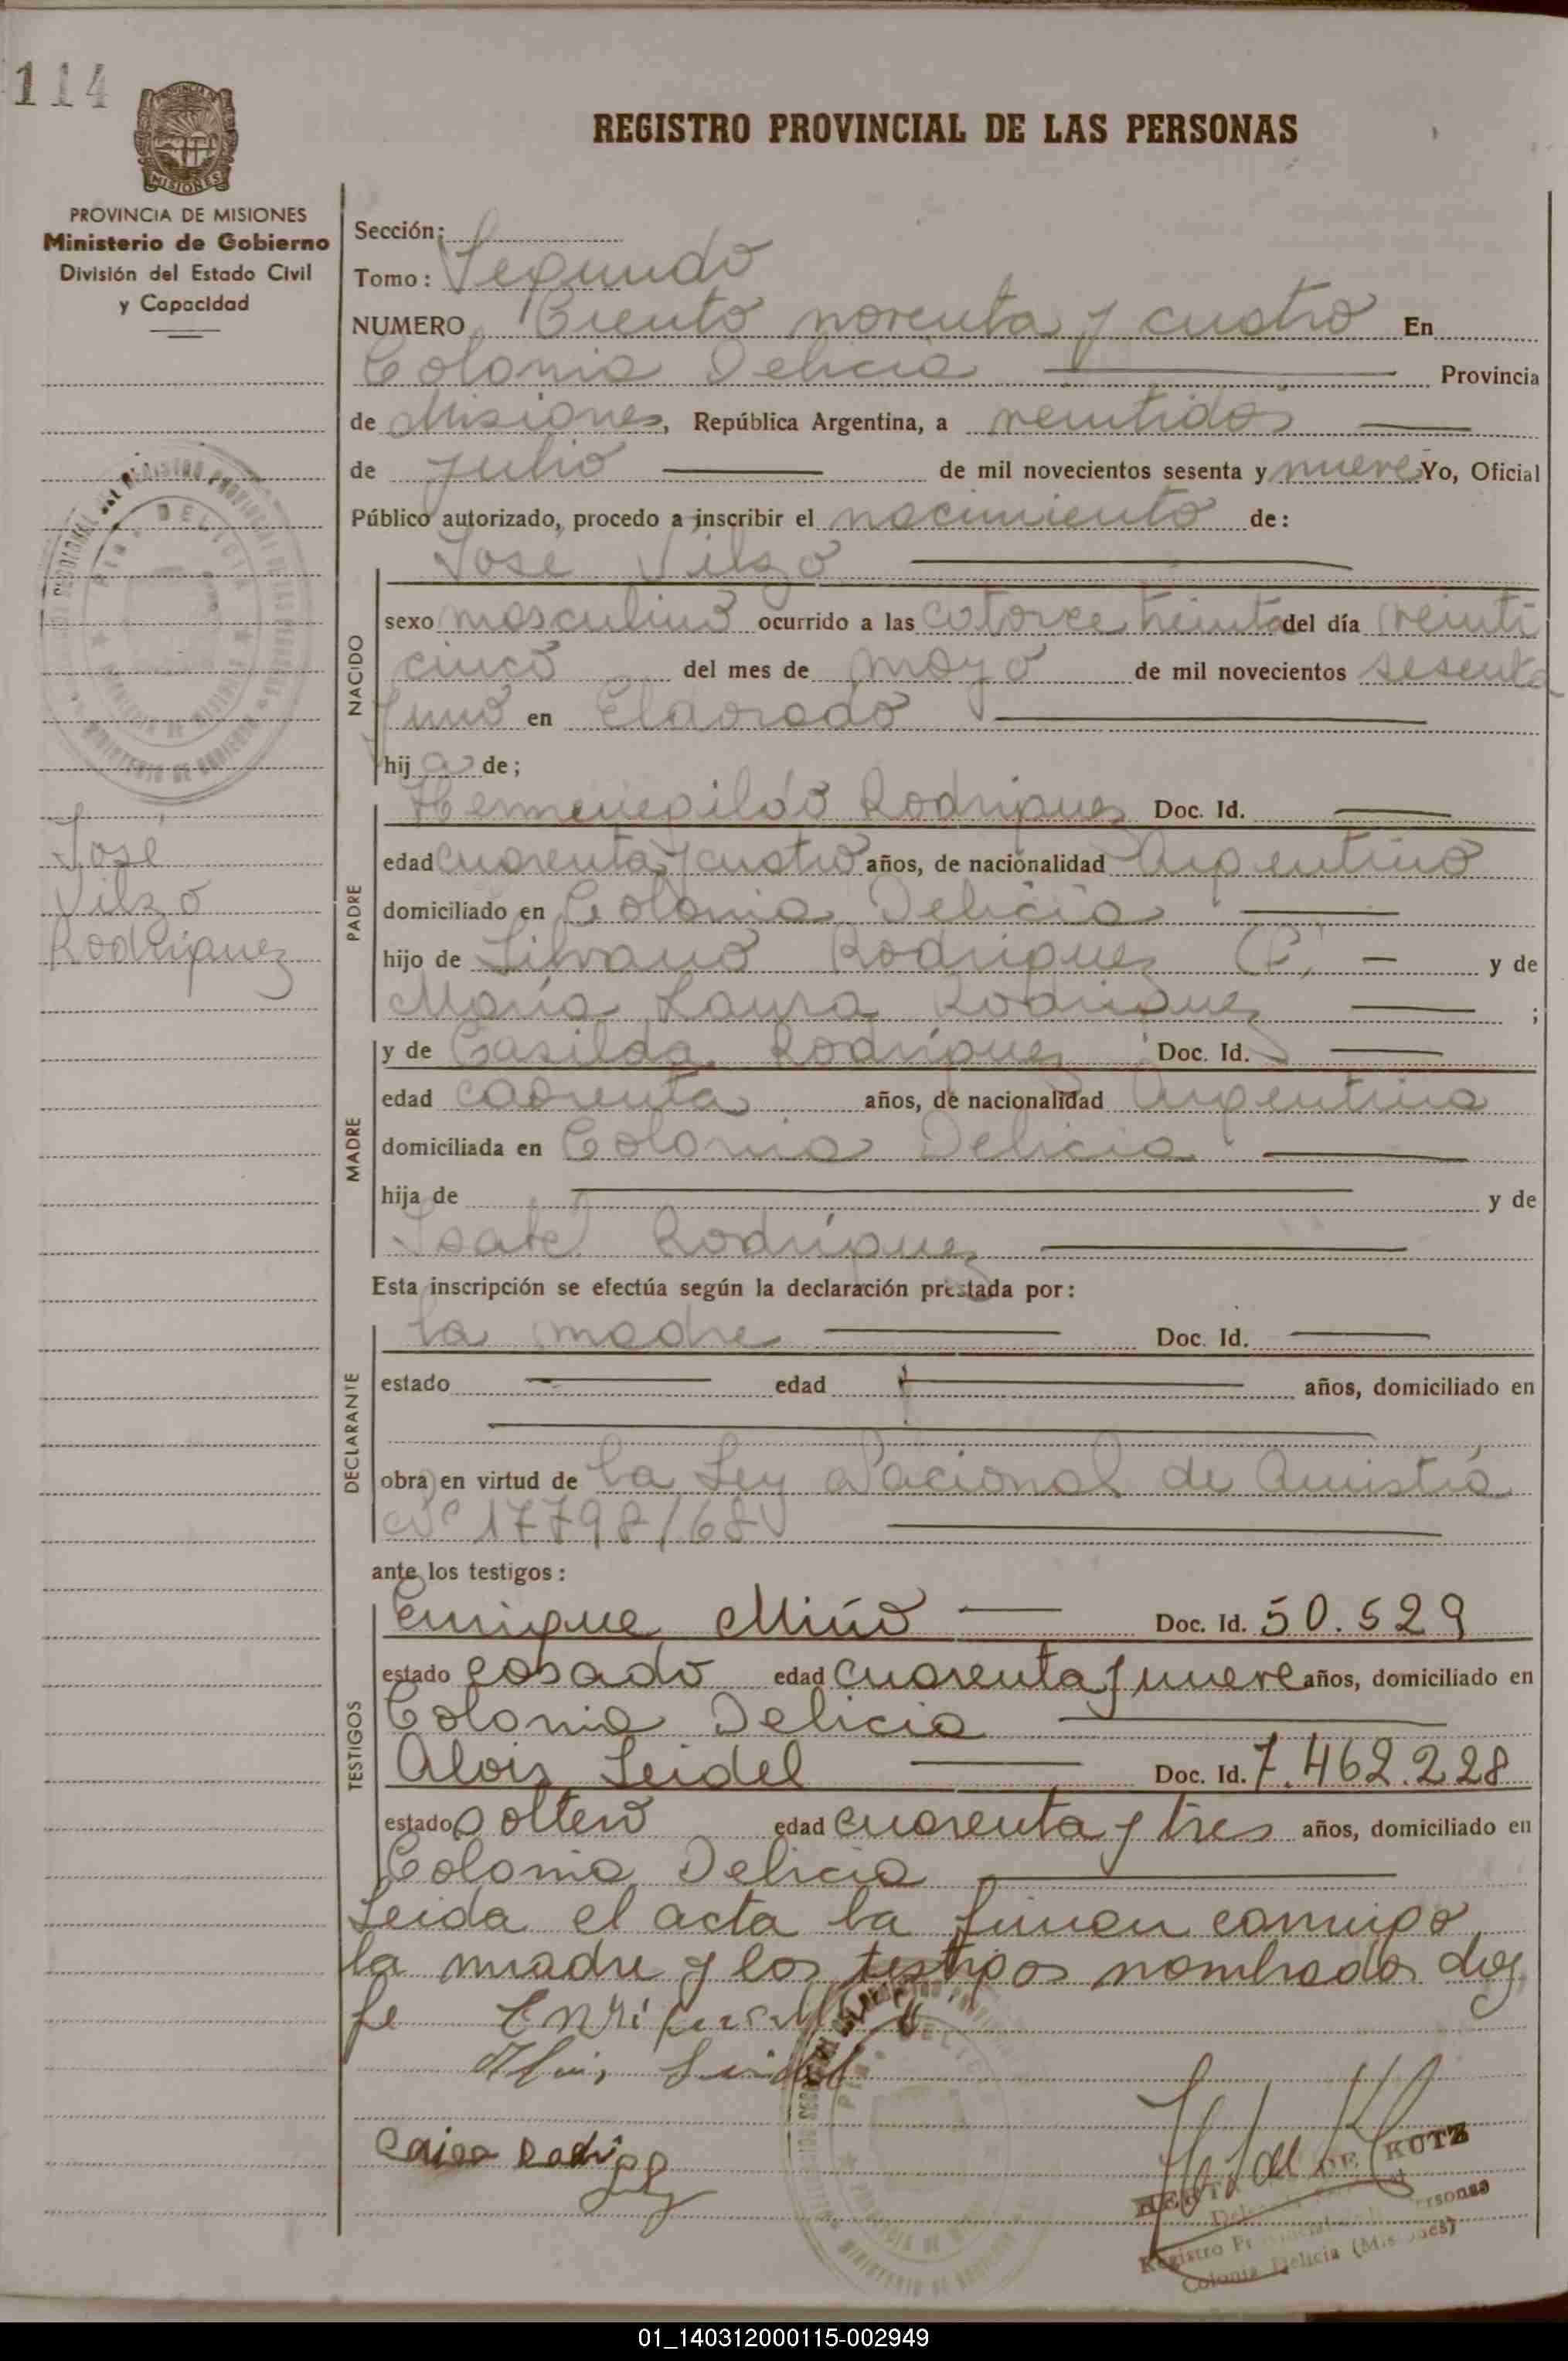 114
REGISTRO PROVINCIAL DE LAS PERSONAS
PROVINCIA DE MISIONES
Ministerio de Gobierno
División del Estado Civil
y Capacidad
Sección:
Tomo: Segundo
NUMERO Ciento noventa y cuatro En
Colonia Delicia Provincia
de Misiones, República Argentina, a veintidos
de julio de mil novecientos sesenta y nueve Yo, Oficial
Público autorizado, procedo a inscribir el nacimiento de:
José Vilzo
NACIDO
sexo masculino ocurrido a las catorce treinta del día veinti
cinco del mes de mayo de mil novecientos sesenta
y uno en Eldorado
hij o de;
PADRE
Hermenegildo Rodriguez Doc. Id.
edad cuarenta y cuatro años, de nacionalidad Argentino
domiciliado en Colonia Delicia
hijo de Silvano Rodriguez y de
María Laura Rodriguez ;
MADRE
y de Casilda Rodríguez Doc. Id.
edad caorenta años, de nacionalidad Argentina
domiciliada en Colonia Delicia
hija de y de
Isabel Rodríguez
Esta inscripción se efectúa según la declaración prestada por:
DECLARANTE
la madre Doc. Id.
estado edad años, domiciliado en
obra en virtud de la Ley Nacional de Amistía
Nº 17798/68
ante los testigos:
TESTIGOS
Enrique Miño Doc. Id. 50.529
estado casado edad cuarenta y nueve años, domiciliado en
Colonia Delicia
Alois Seidel Doc. Id. 7.462.228
estado soltero edad cuarenta y tres años, domiciliado en
Colonia Delicia
Leida el acta la firman conmigo
la madre y los testigos nombrados doy
fe
José
Vilzo
Rodríguez
DE KUTZ
Registro
Colonia Delicia (Misiones)
01_140312000115-002949